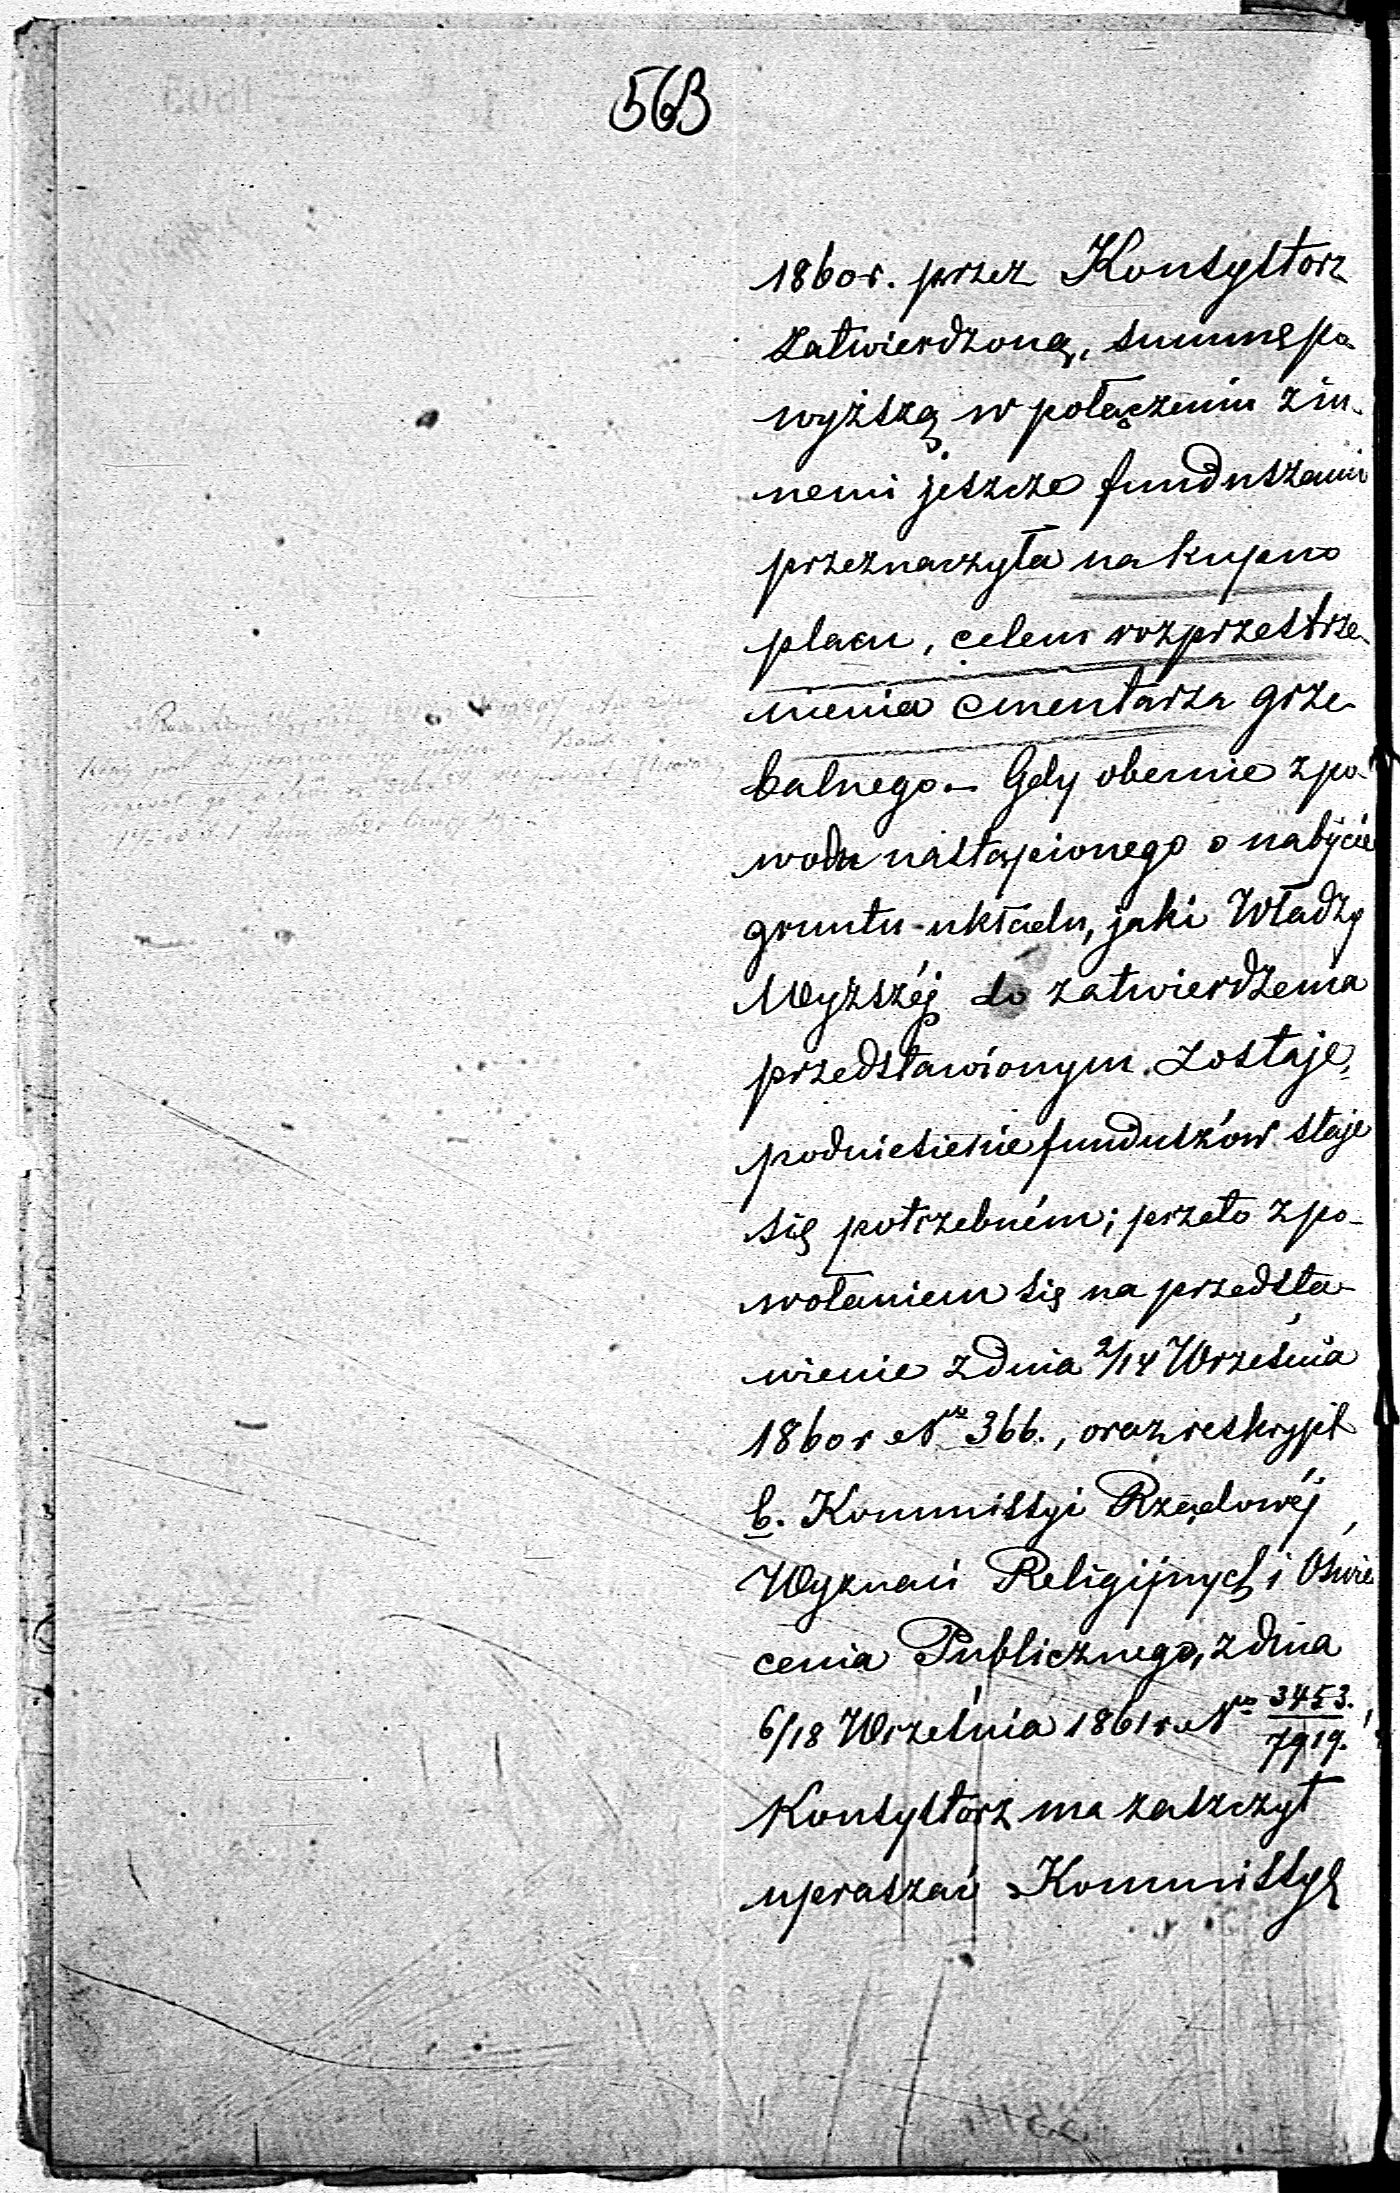 563
1860 r. przez Konsystorz
zatwierdzoną, summę po-
wyższą w połączeniu z in-
nemi jeszcze funduszami
przeznaczyła na kupno
placu, celem rozprzestrze-
nienia cmentarza grze-
balnego. – Gdy obecnie z po-
wodu nastąpionego o nabycie
gruntu układu, jaki Władzy
Wyższéj do zatwierdzenia
przedstawionym zostaje,
podniesienie funduszów staje
się potrzebném; przeto z po-
wołaniem się na przedsta-
wienie z dnia 2/14 Września
1860 r No 366., oraz reskrypt
b. Kommissyi Rządowéj
Wyznań Religijnych i Oświe
cenia Publicznego, z dnia
6/18 Września 1861 r. No 3453./7919.,
Konsystorz ma zaszczyt
upraszać Kommissyę